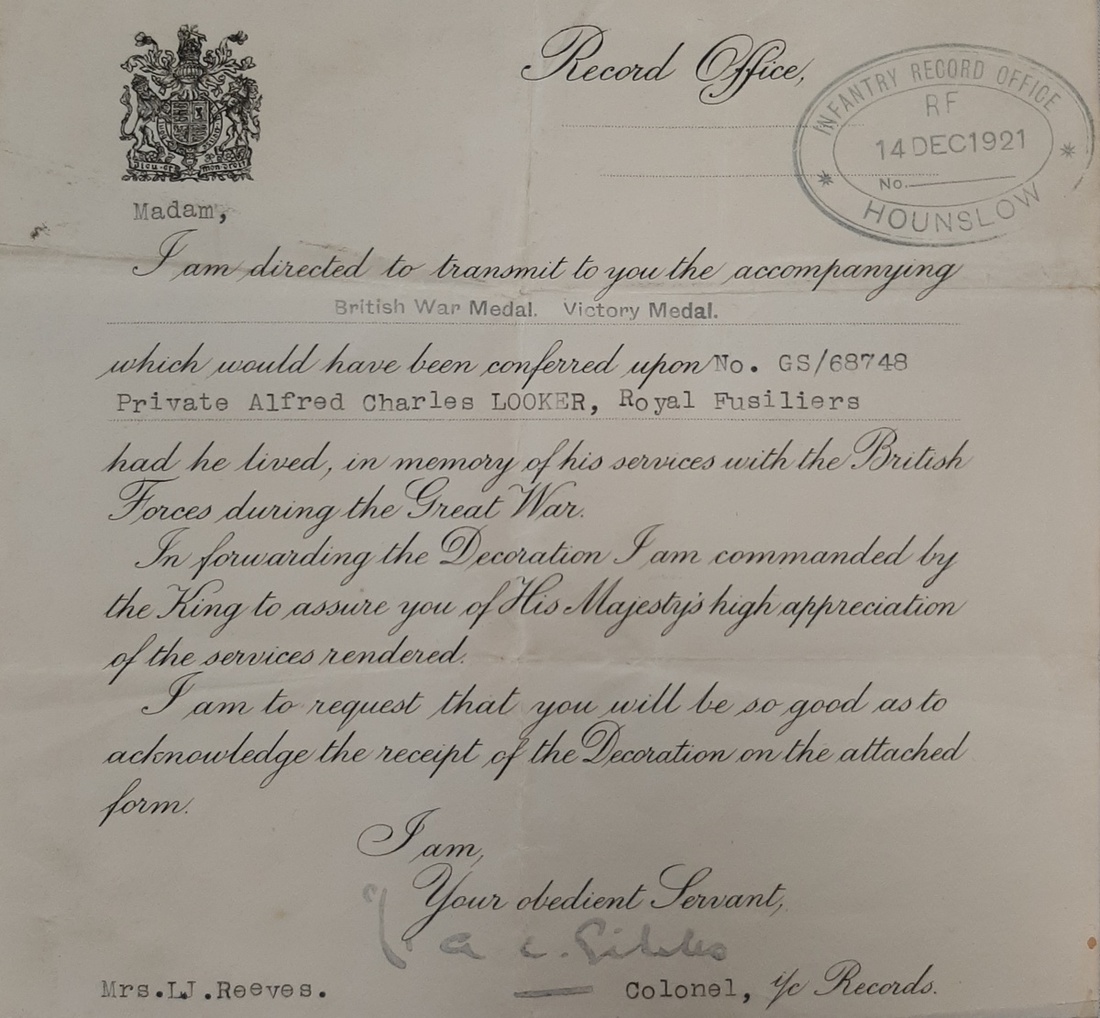 Record Office,
INFANTRY RECORD OFFICE
RF
14 DEC 1921
No.
HOUNSLOW
Dieu et mon droit
Madam,
I am directed to transmit to you the accompanying
British War Medal. Victory Medal.
which would have been conferred upon No. GS/68748
Private Alfred Charles LOOKER, Royal Fusiliers
had he lived, in memory of his services with the British
Forces during the Great War.
In forwarding the Decoration I am commanded by
the King to assure you of His Majesty's high appreciation
of the services rendered.
I am to request that you will be so good as to
acknowledge the receipt of the Decoration on the attached
form.
I am,
Your obedient Servant,
Mrs.LJ.Reeves.
Colonel, i/c Records.